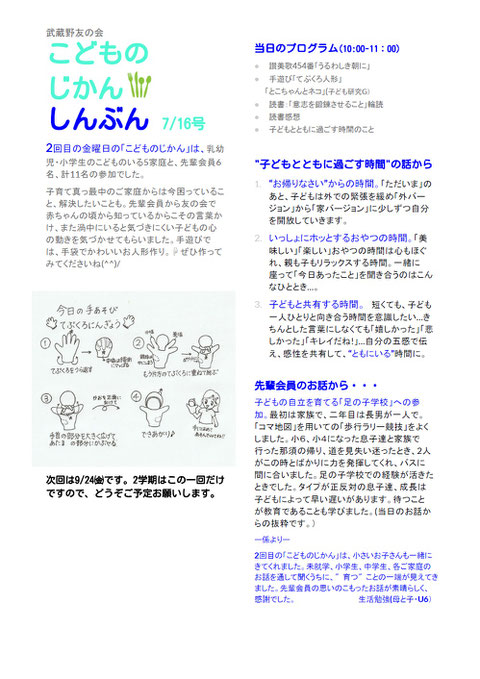 武蔵野友の会
こどもの
じかん
しんぶん 7/16号
2回目の金曜日の「こどものじかん」は、乳幼
児・小学生のこどものいる5家庭と、先輩会員6
名、計11名の参加でした。
子育て真っ最中のご家庭からは今困っているこ
と、解決したいことも。先輩会員から友の会で
赤ちゃんの頃から知っているからこその言葉か
け、また渦中にいると気づきにくい子どもの心
の動きを気づかせてもらいました。手遊びで
は、手袋でかわいいお人形作り。ぜひ作って
みてくださいね(^^)/
今日の手あそび
てぶくろにんぎょう
① てぶくろをうら返す
② 小指 裏側
もう片方のてぶくろに重ねて被す
③ 手首の部分を大きく広げて
あたまの部分にかぶせる
④ できあがり♪
次回は9/24㈮です。2学期はこの一回だけ
ですので、どうぞご予定お願いします。
当日のプログラム(10:00-11：00)
● 讃美歌454番「うるわしき朝に」
● 手遊び「てぶくろ人形」
「とこちゃんとネコ」(子ども研究G)
● 読書：「意志を鍛錬させること」輪読
● 読書感想
● 子どもとともに過ごす時間のこと
"子どもとともに過ごす時間"の話から
1. "お帰りなさい"からの時間。「ただいま」の
あと、子どもは外での緊張を緩め「外バー
ジョン」から「家バージョン」に少しずつ自分
を開放していきます。
2. いっしょにホッとするおやつの時間。「美
味しい」「楽しい」おやつの時間は心もほぐ
れ、親も子もリラックスする時間。一緒に
座って「今日あったこと」を聞き合うのはこん
なひととき…。
3. 子どもと共有する時間。 短くても、子ども
一人ひとりと向き合う時間を意識したい…き
ちんとした言葉にしなくても「嬉しかった」「悲
しかった」「キレイだね！」…自分の五感で伝
え、感性を共有して、"ともにいる"時間に。
先輩会員のお話から・・・
子どもの自立を育てる「足の子学校」への参
加。最初は家族で、二年目は長男が一人で。
「コマ地図」を用いての「歩行ラリー競技」をよく
しました。小６、小４になった息子達と家族で
行った那須の帰り、道を見失い迷ったとき、2人
がこの時とばかりに力を発揮してくれ、バスに
間に合いました。足の子学校での経験が活きた
ときでした。タイプが正反対の息子達、成長は
子どもによって早い遅いがあります。待つこと
が教育であることも学びました。(当日のお話か
らの抜粋です。）
ー係よりー
2回目の「こどものじかん」は、小さいお子さんも一緒に
きてくれました。未就学、小学生、中学生、各ご家庭の
お話を通して聞くうちに、"育つ"ことの一端が見えてき
ました。先輩会員の思いのこもったお話が素晴らしく、
感謝でした。 生活勉強(母と子・U6）